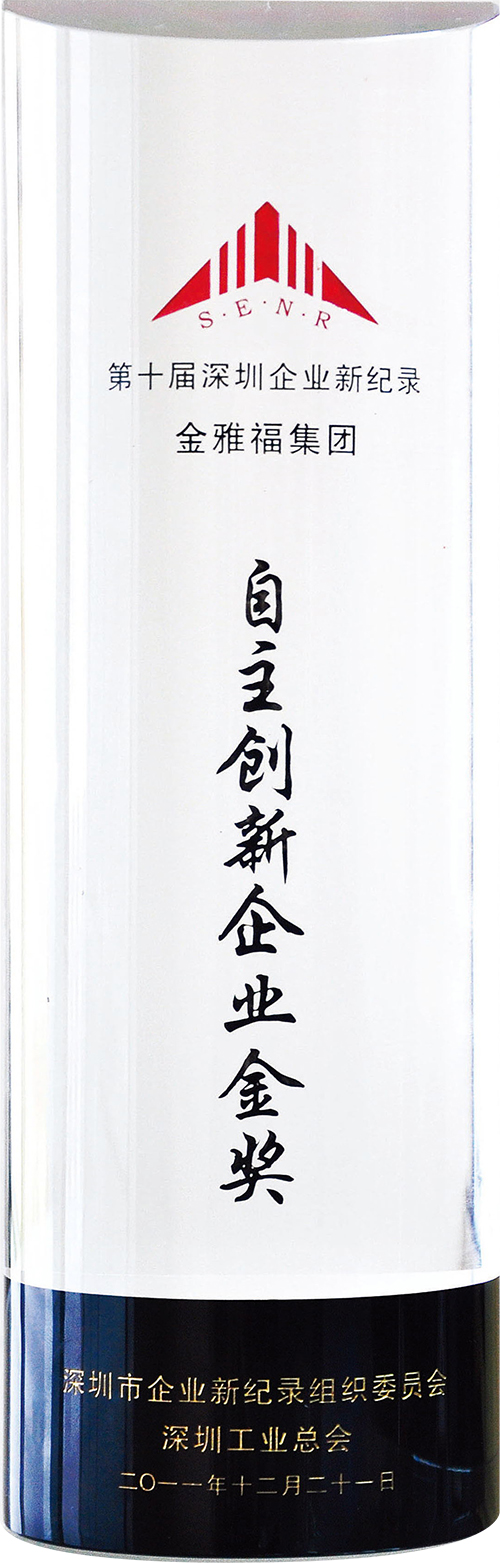 S·E·N·R
第十届深圳企业新纪录
金雅福集团
自主创新企业金奖
深圳市企业新纪录组织委员会
深圳工业总会
二〇一一年十二月二十一日